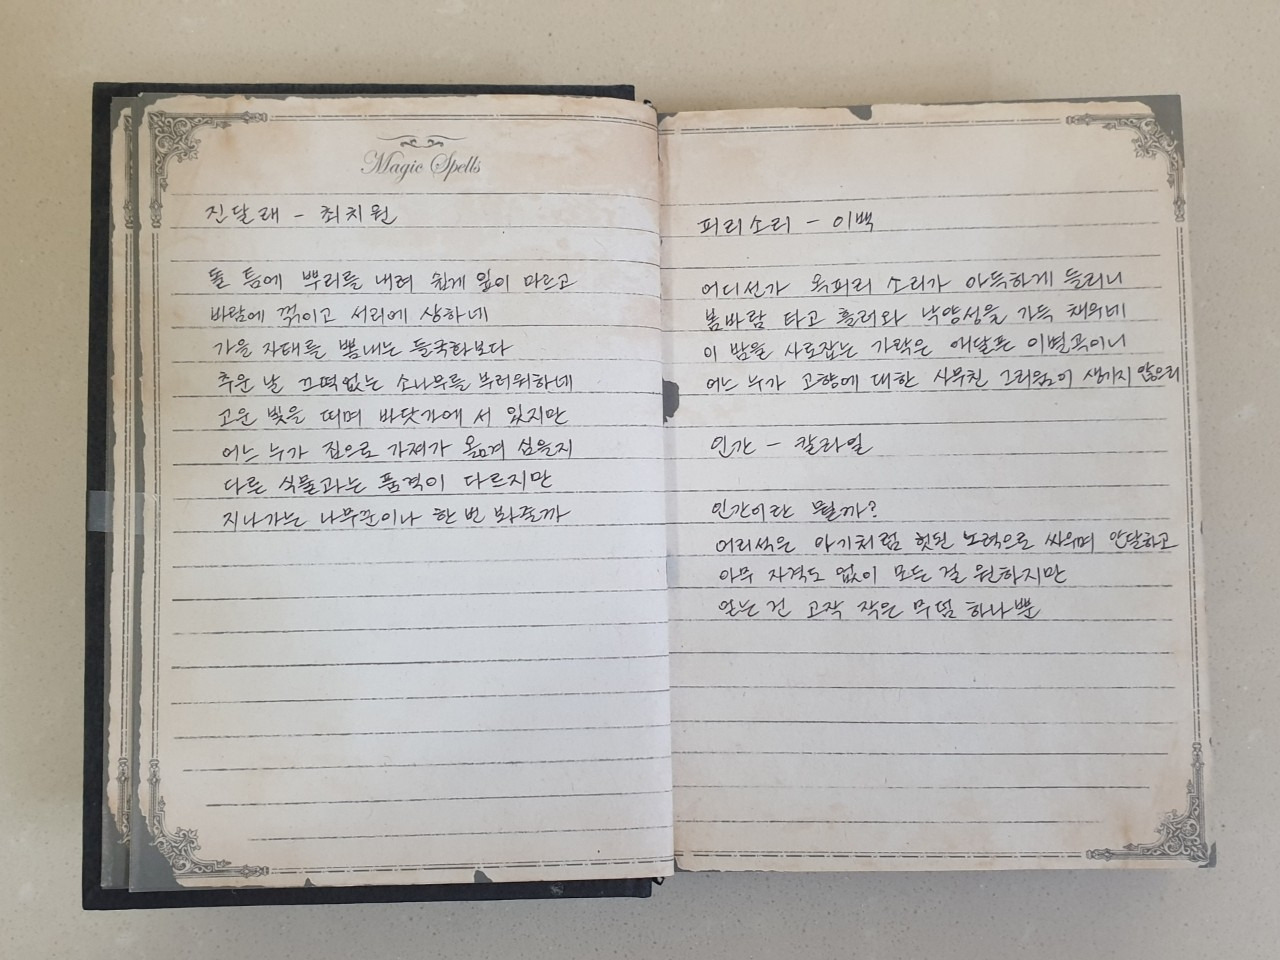 Magic Spells
진달래 - 최치원
돌 틈에 뿌리를 내려 쉽게 잎이 마르고
바람에 꺾이고 서리에 상하네
가을 자태를 뽐내는 들국화보다
추운 날 끄떡없는 소나무를 부러워하네
고운 빛을 띠며 바닷가에 서 있지만
어느 누가 집으로 가져가 옮겨 심을지
다른 식물과는 품격이 다르지만
지나가는 나무꾼이나 한 번 봐줄까
피리소리 - 이백
어디선가 옥피리 소리가 아득하게 들리니
봄바람 타고 흘러와 낙양성을 가득 채우네
이 밤을 사로잡는 가락은 애달픈 이별곡이니
어느 누가 고향에 대한 사무친 그리움이 생기지 않으리
인간 - 칼라일
인간이란 뭘까?
어리석은 아기처럼 헛된 노력으로 싸우며 안달하고
아무 자격도 없이 모든 걸 원하지만
얻는 건 고작 작은 무덤 하나뿐